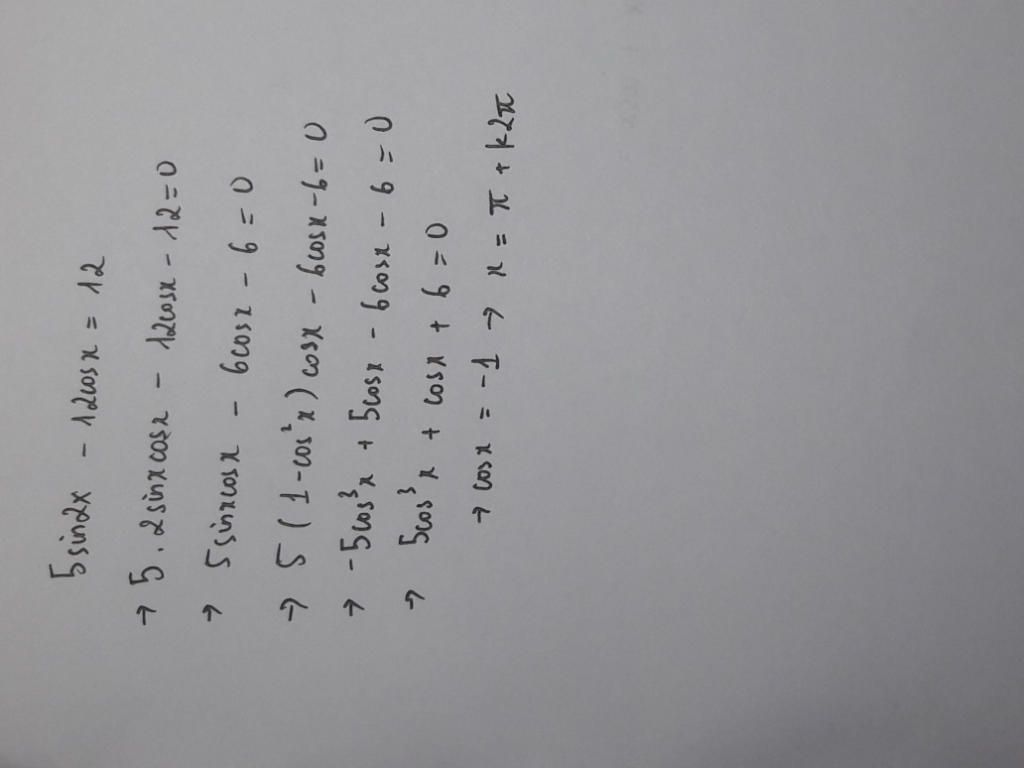 5sin2x - 12cosx = 12
→ 5.2sinxcosx - 12cosx - 12 = 0
→ 5sinxcosx - 6cosx - 6 = 0
→ 5(1-cos²x)cosx - 6cosx - 6 = 0
→ -5cos³x + 5cosx - 6cosx - 6 = 0
→ 5cos³x + cosx + 6 = 0
→ cosx = -1 → x = π + k2π